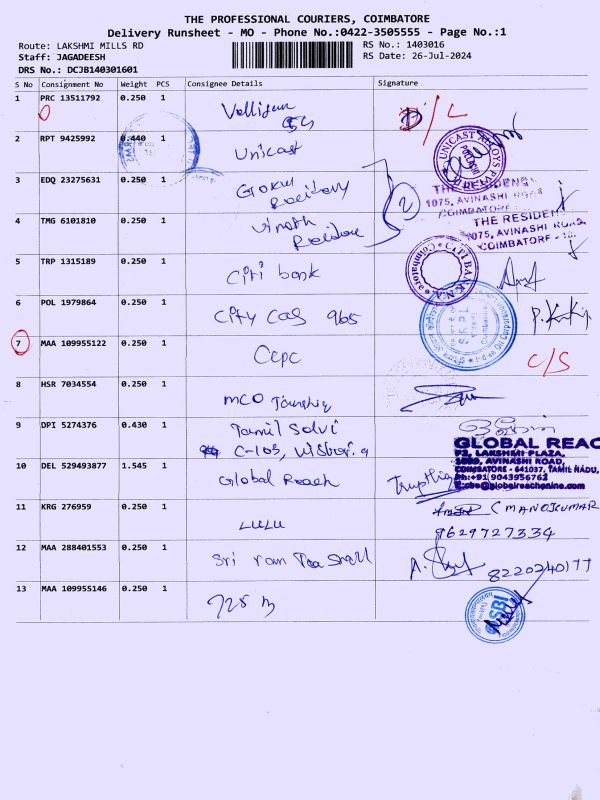 THE PROFESSIONAL COURIERS, COIMBATORE
Delivery Runsheet - MO - Phone No.:0422-3505555 - Page No.:1
Route: LAKSHMI MILLS RD
RS No.: 1403016
Staff: JAGADEESH
RS Date: 26-Jul-2024
DRS No.: DCJB140301601
S No Consignment No Weight PCS Consignee Details Signature
1 PRC 13511792 0.250 1
2 RPT 9425992 0.440 1 Unicast
UNICAST ALLOYS
3 EDQ 23275631 0.250 1 Gokul
THE RESIDENCY
1075, AVINASHI ROAD
COIMBATORE
4 TMG 6101810 0.250 1 Vinoth
THE RESIDEN
1075, AVINASHI ROAD,
COIMBATORE
5 TRP 1315189 0.250 1 Citi bank
CITI BANK N.A
Coimbatore
6 POL 1979864 0.250 1 City Cas 965
7 MAA 109955122 0.250 1 Cepc C/S
8 HSR 7034554 0.250 1 MCO
9 DPI 5274376 0.430 1 Tamil Selvi
C-103,
GLOBAL REAC
F2, LAKSHMI PLAZA,
AVINASHI ROAD,
COIMBATORE - 641037, TAMIL NADU,
Ph:+919043956762
10 DEL 529493877 1.545 1 Global Reach
11 KRG 276959 0.250 1 LULU C MANOJKUMAR
9629727334
12 MAA 288401553 0.250 1 Sri ram Tea Stall 8220240177
13 MAA 109955146 0.250 1
SBI